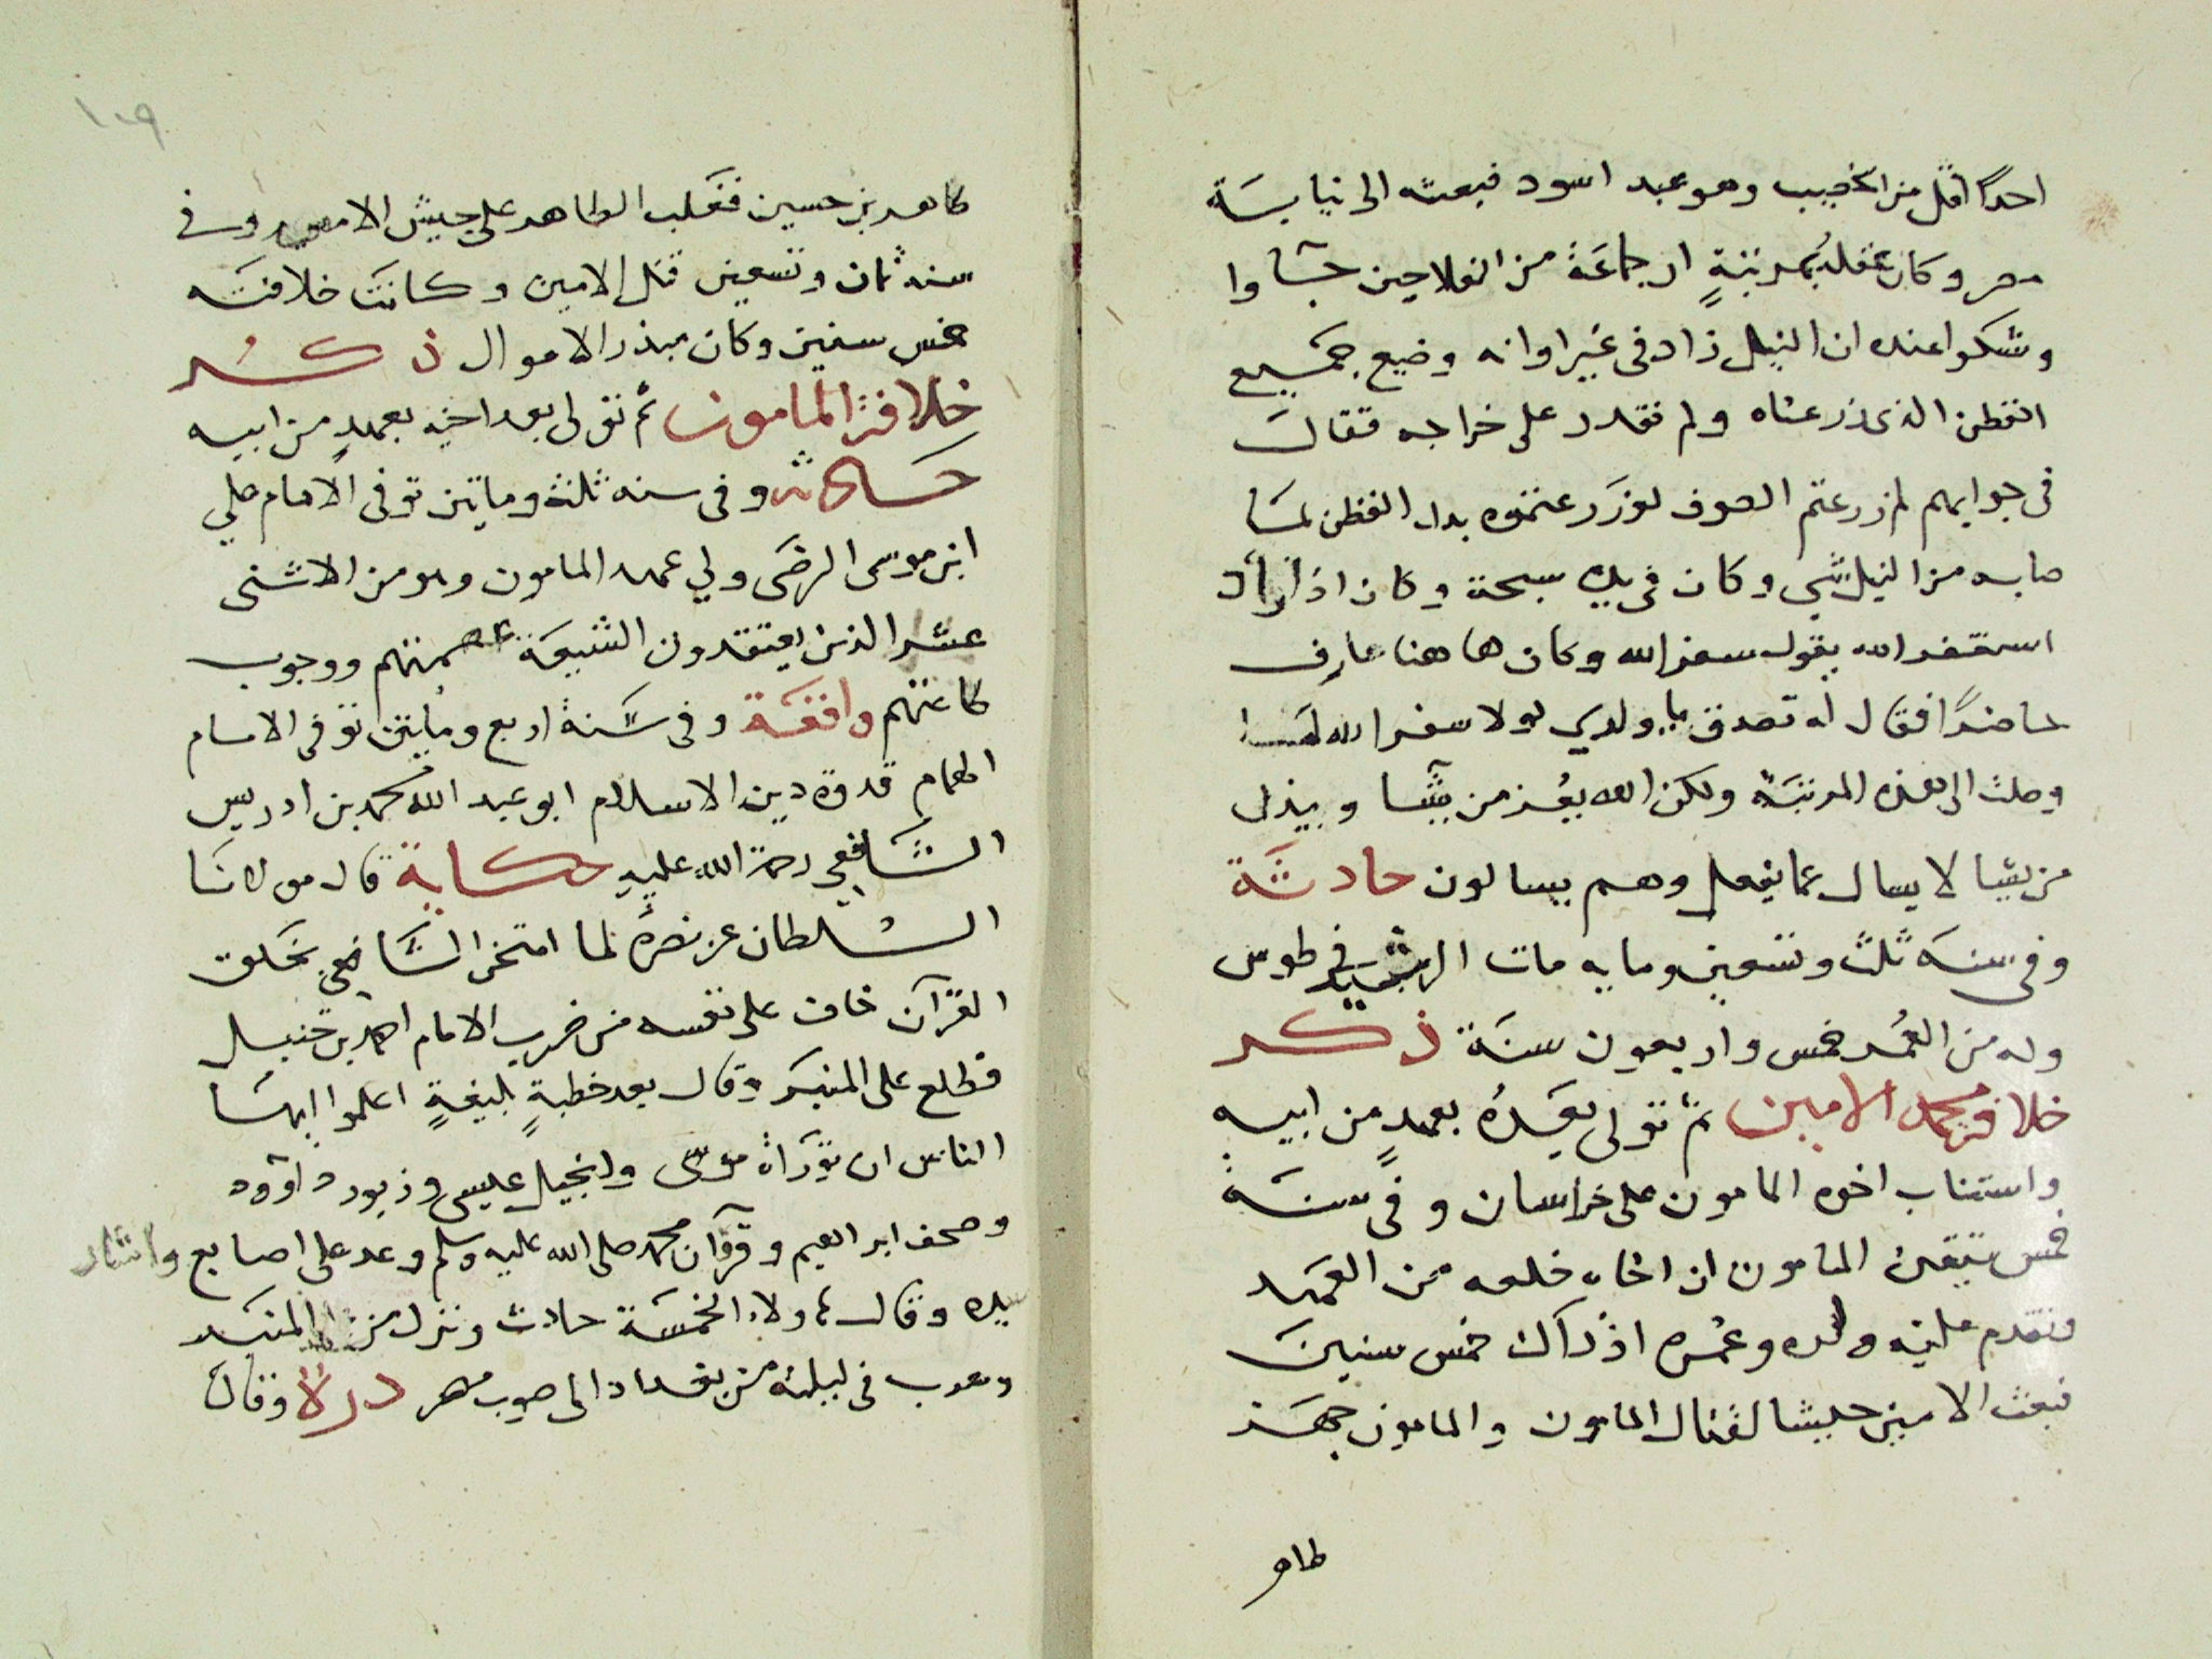 احدًا اقل من الخصيب وهو عبد اسود فبعثه الى نيابة
مصر وكان عقله بمرتبةٍ ان جماعة من الفلاحين جآوا
وشكوا عنده ان النيل زاد فى غير اوانه وضيع جميع
القطن الذى زرعناه ولم نقدر على خراجه فقال
فى جوابهم لم زرعتم الصوف لو زرعتموه بدل القطن لما
صابه من النيل شى وكان فى يده سبحة وكان اذا اراد
استغفر الله يقول سعفر الله وكان هاهنا عارف
حاضرًا فقال له تصدق يا ولدي لولا سعفر الله لما
وصلت الى هذه المرتبة ولكن الله يعز من يشآ ويذل
من يشا لا يسال عما يفعل وهم يسالون حادثة
وفى سنة ثلث وتسعين ومايه مات الرشيد فى طوس
وله من العمر خمس واربعون سنة ذكر
خلافة محمد الامين ثم تولى بعده بعهدٍ من ابيه
واستناب اخوه المامون على خراسان وفى سنة
خمس تيقن المامون ان اخاه خلعه من العهد
وتقدم عليه ولده وعمره اذ ذاك خمس سنين
فبعث الامين جيشا لقتال المامون والمامون جهز
طاهر
١٠٩
طاهر بن حسين فغلب الطاهر على جيش الامين وفى
سنه ثمان وتسعين قتل الامين وكانت خلافته
خمس سنين وكان مبذر الاموال ذكر
خلافة المامون ثم تولى بعد اخيه بعهدٍ من ابيه
حادثة وفى سنه ثلثه وماتين توفى الامام علي
ابن موسى الرضى ولي عهد المامون وهو من الاثنى
عشر الذين يعتقدون الشيعة عصمتهم ووجوب
طاعتهم واقعة وفى سنة اربع وماتين توفى الامام
الهمام قدوة دين الاسلام ابو عبد الله محمد بن ادريس
الشافعي رحمة الله عليه حكاية قال مولانا
السلطان عز نصره لما امتحن الشافعي بخلق
القرآن خاف على نفسه من ضرب الامام احمد بن حنبل
فطلع على المنبر وقال بعد خطبةٍ بليغةٍ اعلموا ايها
الناس ان توراة موسى وانجيل عليسى وزبور داوود
وصحف ابراهيم وقرآن محمد صلى الله عليه وسلم وعد على اصابع واشار
بيده وقال هاولاء الخمسة حادث ونزل من المنبر
وهرب فى ليلته من بغداد الى صوب مصر درة وقال